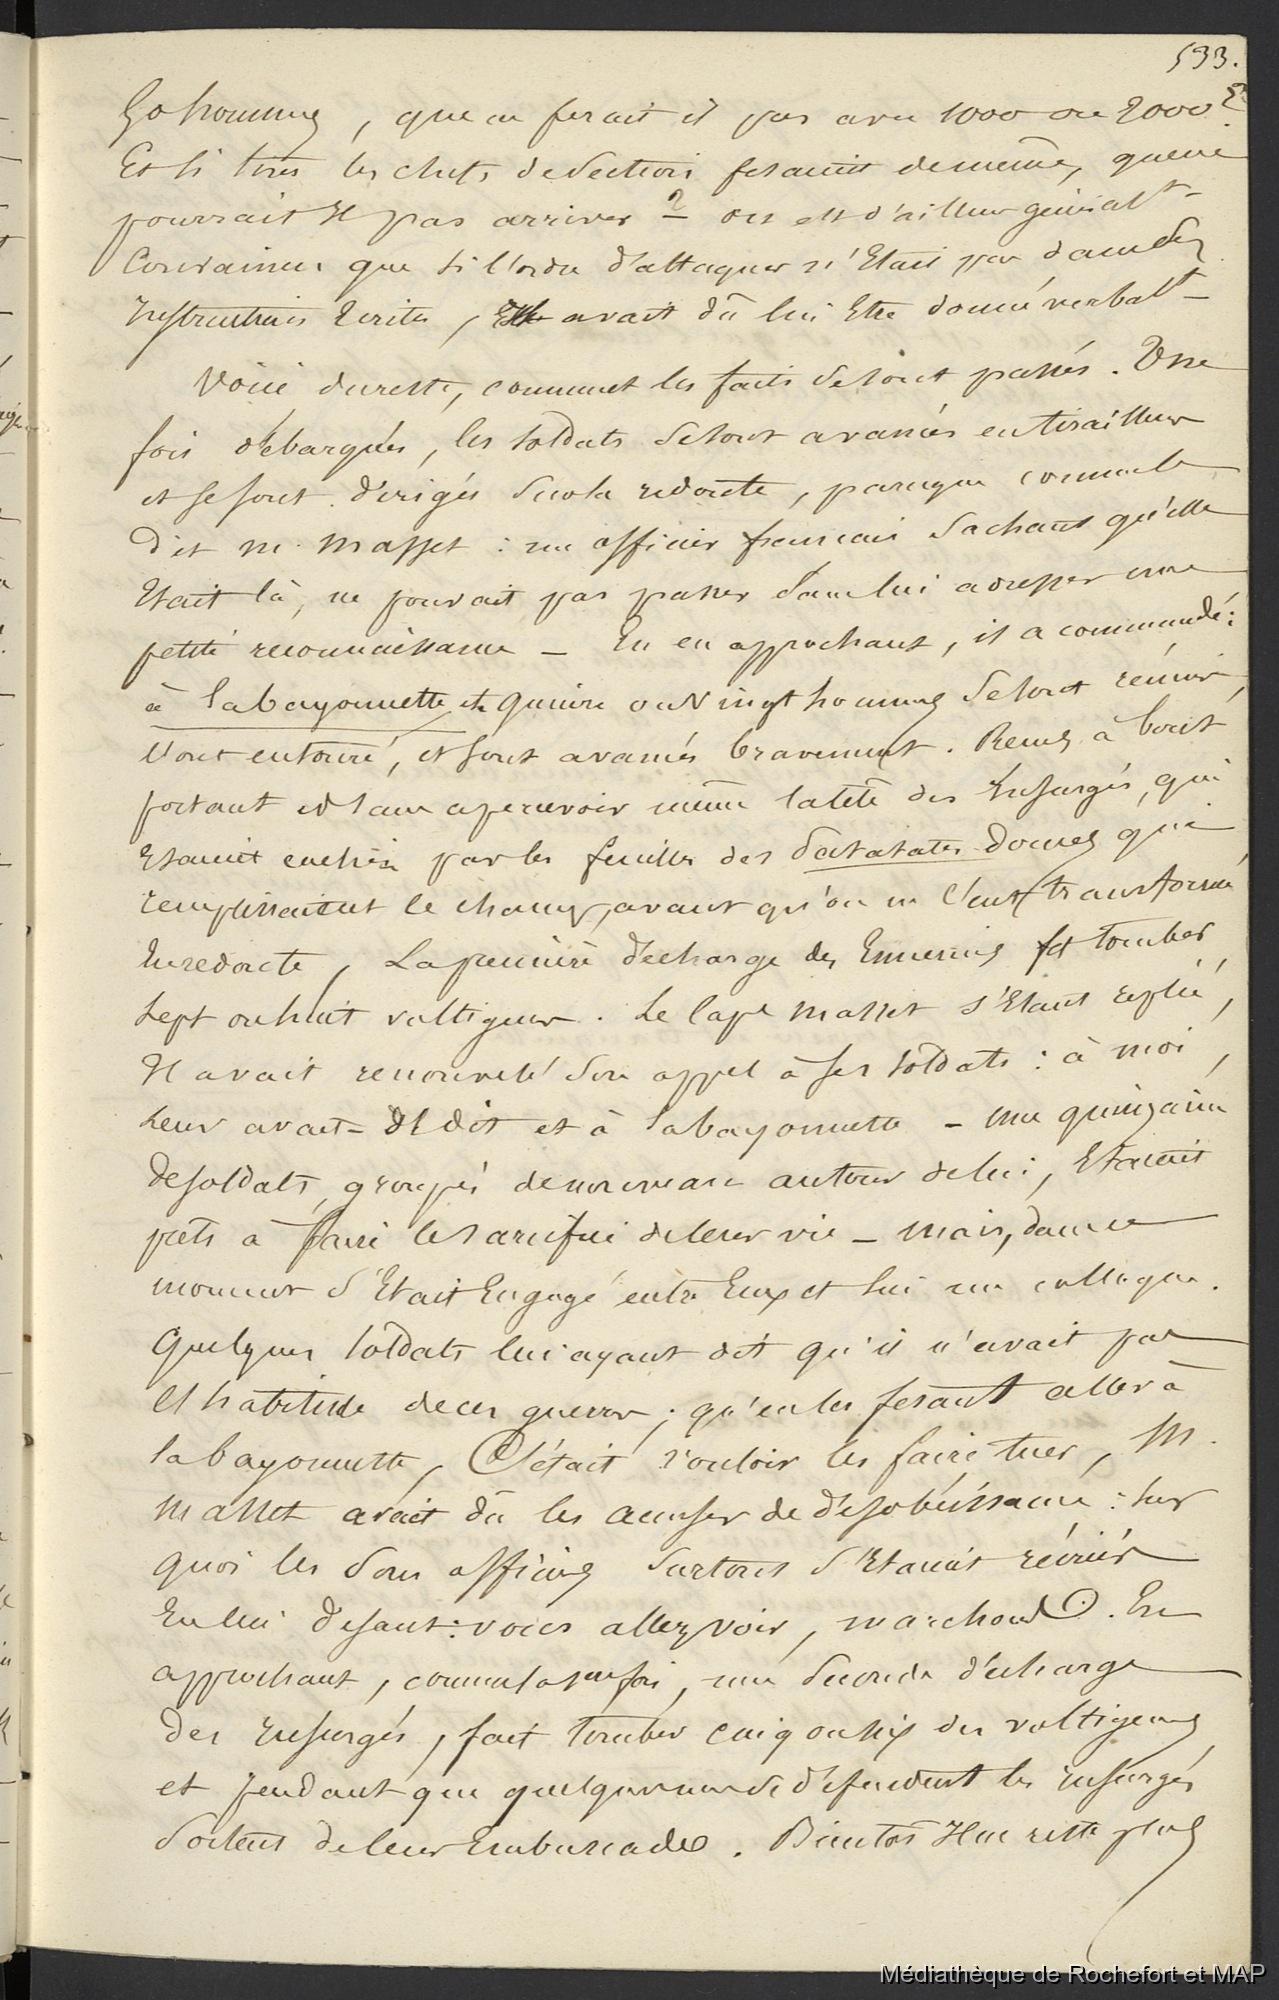 533.
60 hommes, que ne ferait il pas avec 1000 ou 2000 ?
Et si tous les chefs de section fesaient de même, que ne
pourrait Il pas arriver ? on est d'ailleurs général.t
Convaincu que si l'ordre d'attaquer n'Etait pas dans des
Instructions Ecrites, Il avait dû lui Etre donné verbal.t
Voici du reste, comment les faits se sont passés. Une
fois débarqués, les soldats se sont avancés en tirailleur
et se sont dirigés sur la redoute, parceque comme le
dit m. masset : un officier français sachant qu'elle
Etait là, ne pouvait pas passer sans lui adresser une
petite reconnaissance – En en approchant, il a commandé :
à la bayonnette, et quinze ou Vingt hommes se sont réunis,
l'ont entouré, et sont avancés bravement. Reçus à bout
portant et sans apercevoir même la tête des Insurgés, qui
Etaient cachés par les feuilles des patates douces qui
remplissaient le champ, avant qu'on ne l'eut transformé
En redoute, La première décharge des Ennemis fit tomber
sept ou huit voltigeurs. Le Cap.e masset s'Etant replié,
Il avait renouvelé son appel à ses soldats : à moi,
leur avait-Il dit et à la bayonnette – une quinzaine
de soldats, groupés de nouveau autour de lui, Etaient
prêts à faire le sacrifice de leur vie – mais, dans ce
moment s'Etait Engagé entre Eux et lui un colloque.
Quelques soldats lui ayant dit qu'il n'avait pas
l'habitude de ces guerres ; qu'en les fesant aller à
la bayonnette, C'était vouloir les faire tuer, M.
masset avait dû les accuser de désobéissance : sur
quoi les sous officiers surtout s'Etaient récriés
En lui disant : vous allez voir, marchons. En
approchant, comme la 1ere fois, une seconde décharge
des Insurgés, fait tomber cinq ou six des voltigeurs
et pendant que quelques uns se défendent les Insurgés
sortent de leur Embuscade. Bientôt Il ne reste plus
Médiathèque de Rochefort et MAP